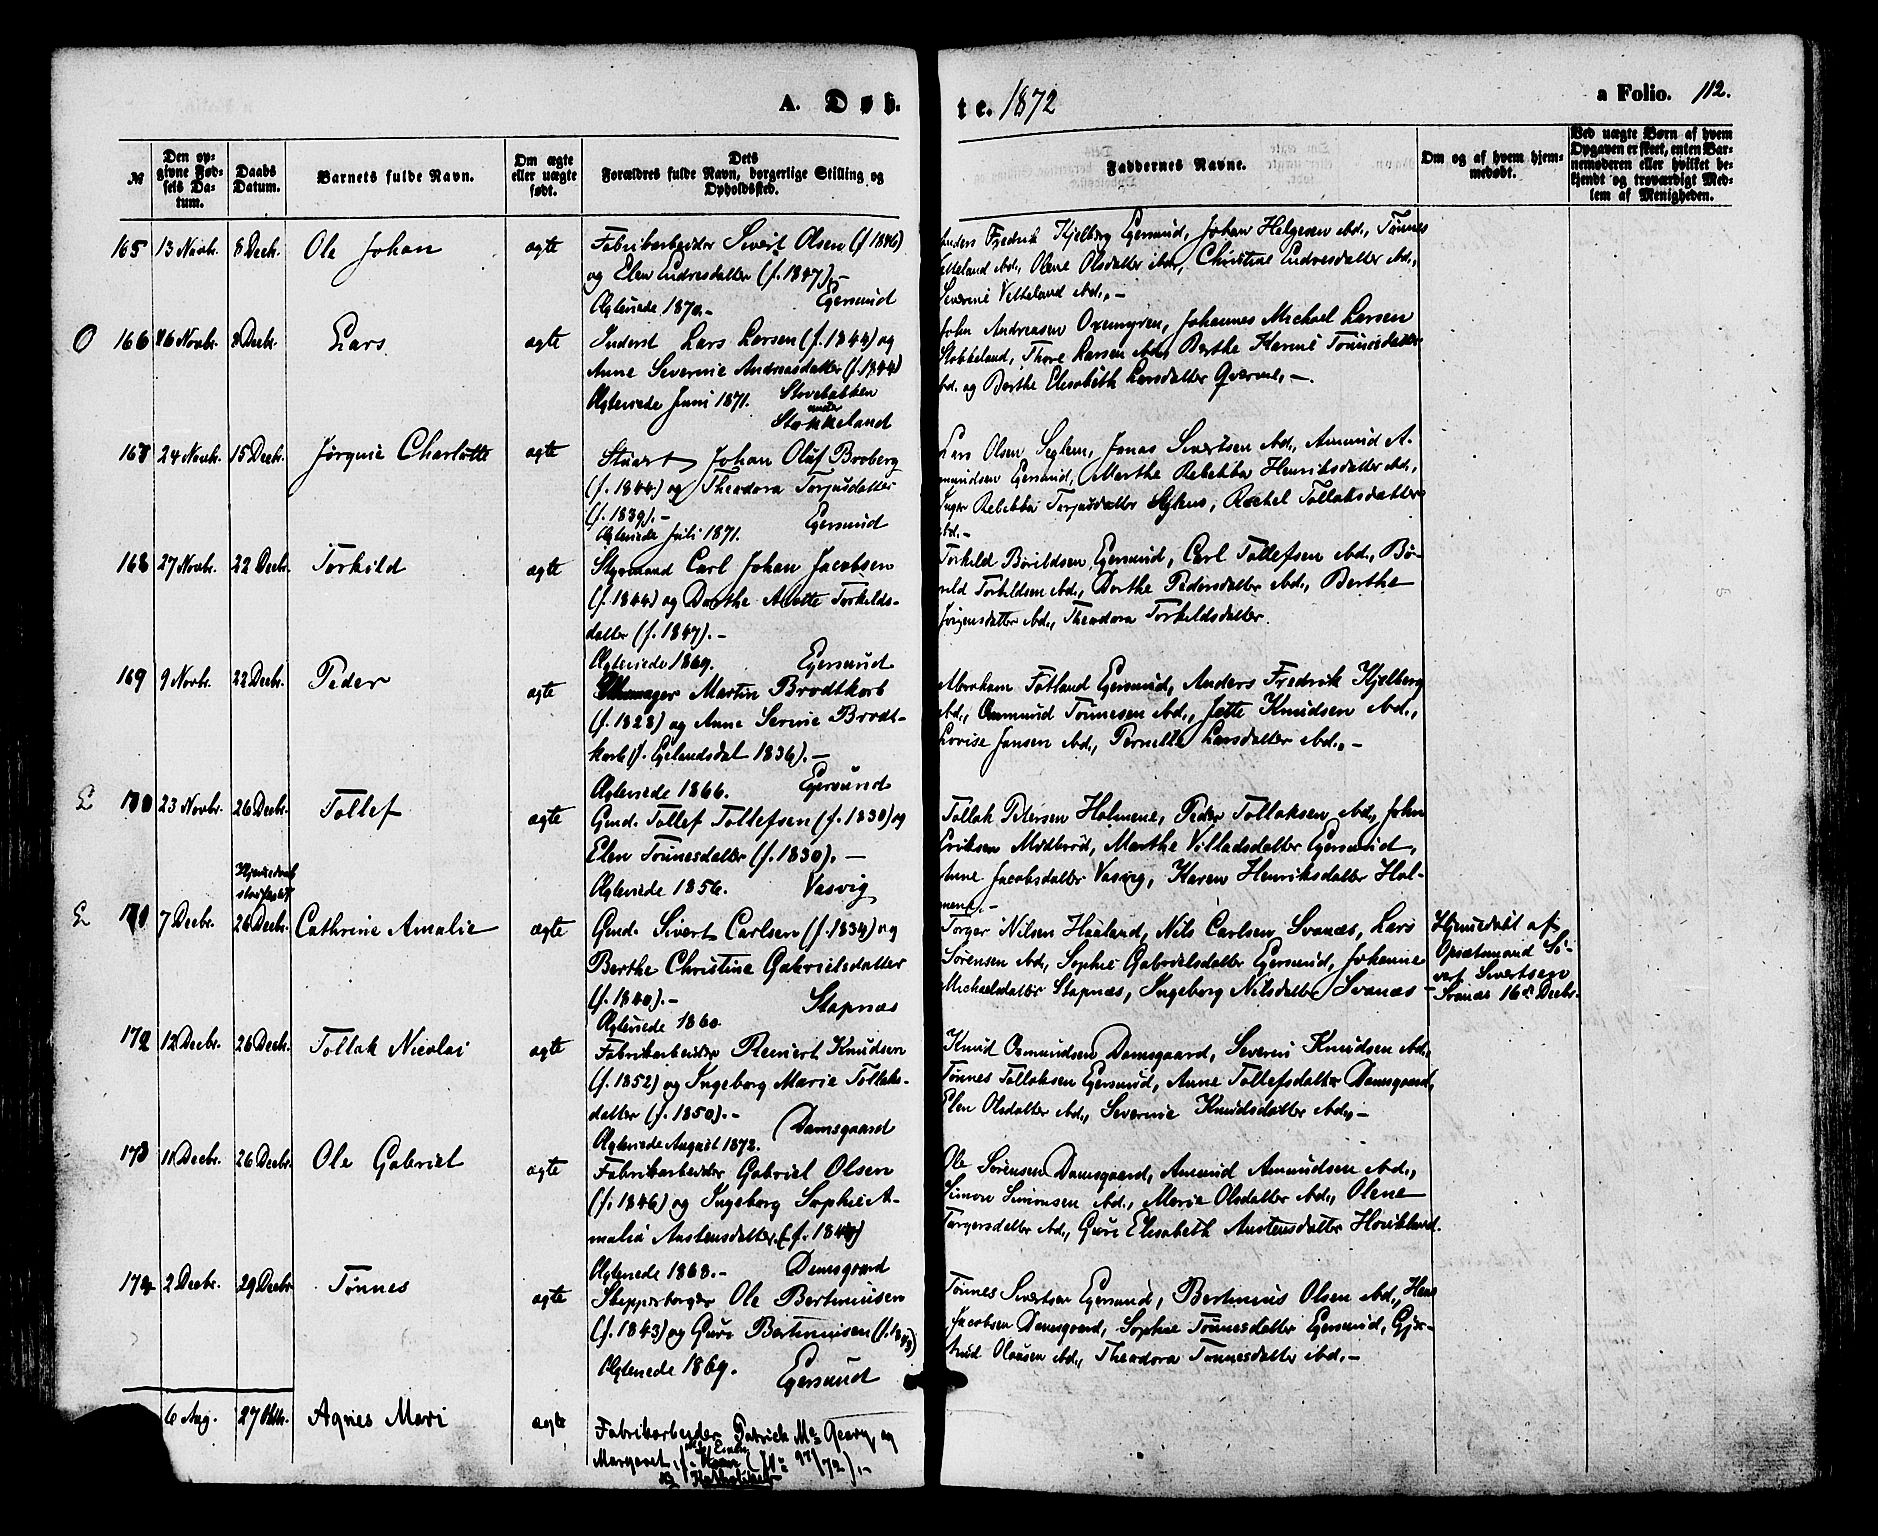 A. Døb-
te. 1872
a Folio. 112.
№
Den op-
givne Fød-
sels Da-
tum.
Daabs
Datum.
Barnets fulde Navn.
Om ægte
eller uægte
født.
Dets
Forældres fulde Navn, borgerlige Stilling og
Opholdssted.
Faddernes Navne.
Om og af hvem hjem-
medøbt.
Ved uægte Børn af hvem
Opgaven er skeet, enten Bar-
nemoderen eller hvilket be-
kjendt og troværdigt Med-
lem af Menigheden.
165 13 Novbr. 8 Decbr. Ole Johan ægte
Fabrikarbeider Sivert Olsen (f. 1846)
og Elen Endresdatter (f. 1847).-
Ægteviede 1870.- Egersund
Anders Fredrik Kjelberg Egersund, Johan Helgesen ibd., Tønnes
Velteland ibd., Olene Olsdatter ibd., Christine Endresdatter ibd.,
Severine Velteland ibd.,-
O 166 26 Novbr. 8 Decbr. Lars ægte
Inderst Lars Larsen (f. 1844) og
Anne Severine Andreasdatter (f. 1844)
Ægteviede Juni 1871. Stovebakken
under
Stokkeland
John Andreasen Oxemyren, Johannes Michael Larsen
Stokkeland, Thore Larsen ibd., Berthe Karine Tønnesdatter
ibd. og Berthe Elisabeth Larsdatter Qværne,-
24 Novbr. 15 Decbr. Jørgine Charlotte ægte
Stuert Johan Oluf Broberg
(f. 1844) og Theodora Torjusdatter
(f. 1839).-
Ægteviede Juli 1871. Egersund
Lars Olsen Seglem, Jonas Sivertsen ibd., Amund A-
mundsen Egersund, Marthe Rebekka Henriksdatter ibd.,
Inger Rebekka Torjusdatter, Rachel Tollaksdatter
ibd.-
168 27 Novbr. 22 Decbr. Torkild ægte
Styrmand Carl Johan Jacobsen
(f. 1844) og Dorthe Torkilds-
datter (f. 1847).-
Ægteviede 1869. Egersund
Torkild Børildsen Egersund, Carl Tollefsen ibd., Bø-
rild Torkildsen ibd., Dorthe Pedersdatter ibd., Berthe
Jørgensdatter ibd., Theodora Torkildsdatter.
169 9 Novbr. 22 Decbr. Peder ægte
Martin Brodtkorb
(f. 1828) og Anne Serine Brodt-
korb (f. Egelandsdal 1836).-
Ægteviede 1866. Egersund
Abraham Fotland Egersund, Anders Fredrik Kjelberg
ibd., Osmund Tønnesen ibd., Jette Knudsen ibd.,
Lovise Jansen ibd., Pernille Larsdatter ibd.,-
170 23 Novbr. 26 Decbr. Tollef ægte
Gmd. Tollef Tollefsen (f. 1830) og
Elen Tønnesdatter (f. 1830).-
Ægteviede 1856. Vasvig
Tollak Petersen Holmene, Peder Tollaksen ibd., John
Eriksen Midbrød, Marthe Villadsdatter Egersund,
Anne Jacobsdatter Vasvig, Karen Henriksdatter Hol-
mene.-
Hjemmedaab
stadfæstet
7 Decbr. 26 Decbr. Cathrine Amalie ægte
Gmd. Sivert Carlsen (f. 1834) og
Berthe Christine Gabrielsdatter
(f. 1840).-
Ægteviede 1860. Stapnæs
Torger Nilsen Haaland, Nils Carlsen Svanæs, Lars
Sørensen ibd., Sophie Gabrielsdatter Egersund, Johanne
Michaelsdatter Stapnæs, Ingeborg Nilsdatter Svanæs
Hjemmedøbt af
Opsætsmand Si-
vert Sivertsen
Svanæs 16 Decbr.
172 12 Decbr. 26 Decbr. Tollak Nicolai ægte
Fabrikarbeider Reinert Knudsen
(f. 1852) og Ingeborg Marie Tollaks-
datter (f. 1850).-
Damsgaard
Ægteviede August 1872.
Knud Osmundsen Damsgaard, Severin Knudsen ibd.,
Tønnes Tollaksen Egersund, Anne Tollefsdatter Damsgaard,
Elen Olsdatter ibd., Severine Knudsdatter ibd.,-
173 11 Decbr. 26 Decbr. Ole Gabriel ægte
Fabrikarbeider Gabriel Olsen
(f. 1846) og Ingeborg Sophie A-
malia Austensdatter (f. 1844)
Ægteviede 1868.- Damsgaard
Ole Sørensen Damsgaard, Amund Amundsen ibd.,
Simon Simonsen ibd., Marie Olsdatter ibd., Olene
Torgersdatter ibd., Guri Elisabeth Austensdatter
174 2 Decbr. 29 Decbr. Tønnes ægte
Skipperborger Ole Bertinusen
(f. 1843) og Guri Bertinusen (f. 1843)
Ægteviede 1869. Egersund
Tønnes Sivertsen Egersund, Bertinius Olsen ibd., Hans
Jacobsen Damsgaard, Sophie Tønnesdatter Egersund, Gjer-
trud Olausen ibd., Theodora Tønnesdatter ibd.-
6 Aug. 27 Oktbr. Agnes Mari ægte
Fabrikarbeider Patrick Mc Geary og
Margaret,